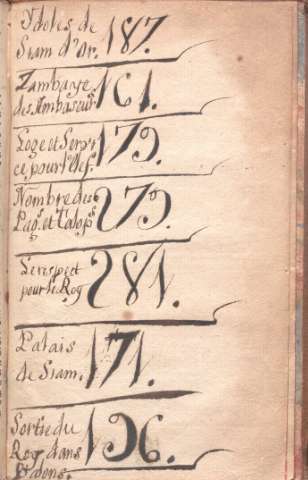 Idoles de
Siam d'Or. 187.
des Ambaseurs 161.
Loge et Servi
ce pour 179.
Nombre des
Pag. et Talop.s 279.
Le respect
pour le Roy 281.
Palais
de Siam. 171.
Sortie du
Roy dans 196.